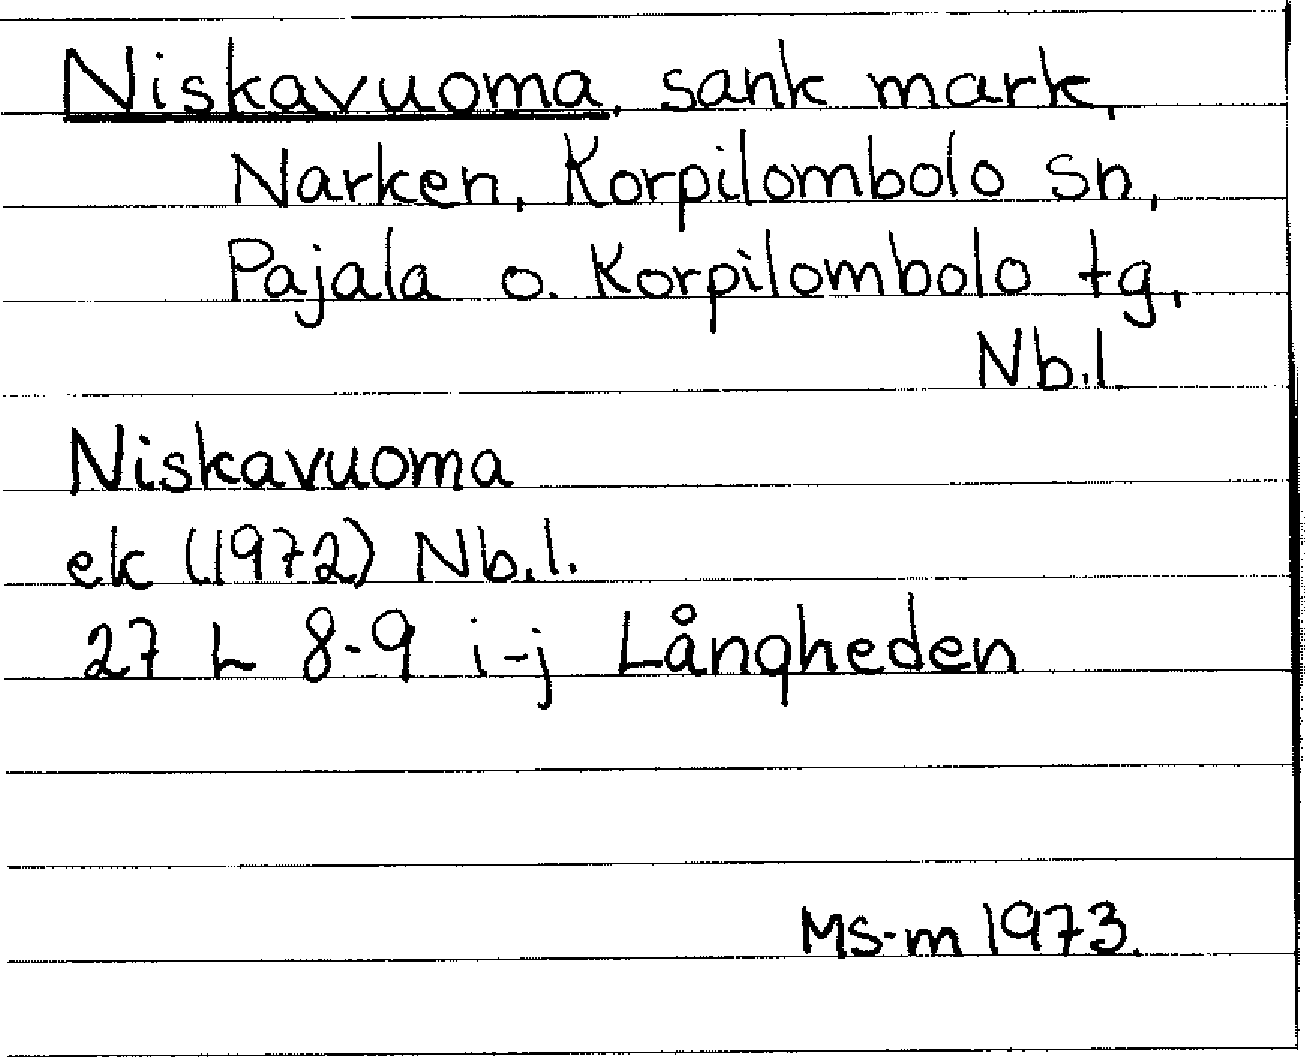 Niskavuoma, sank mark,
Narken, Korpilombolo sn,
Pajala o. Korpilombolo tg,
Nb.l.
Niskavuoma
ek (1972) Nb.l.
27 L 8-9 i-j Långheden
MS-m 1973.